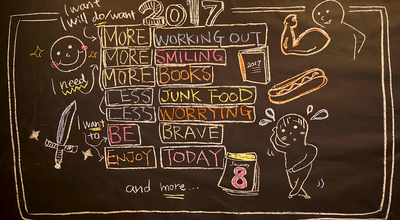 2017
I want
I will do/want
MORE WORKING OUT
MORE SMILING
2017
MORE BOOKS
I need
LESS JUNK FOOD
LESS WORRYING
I want
to
BE BRAVE
ENJOY TODAY
January
8
and more...